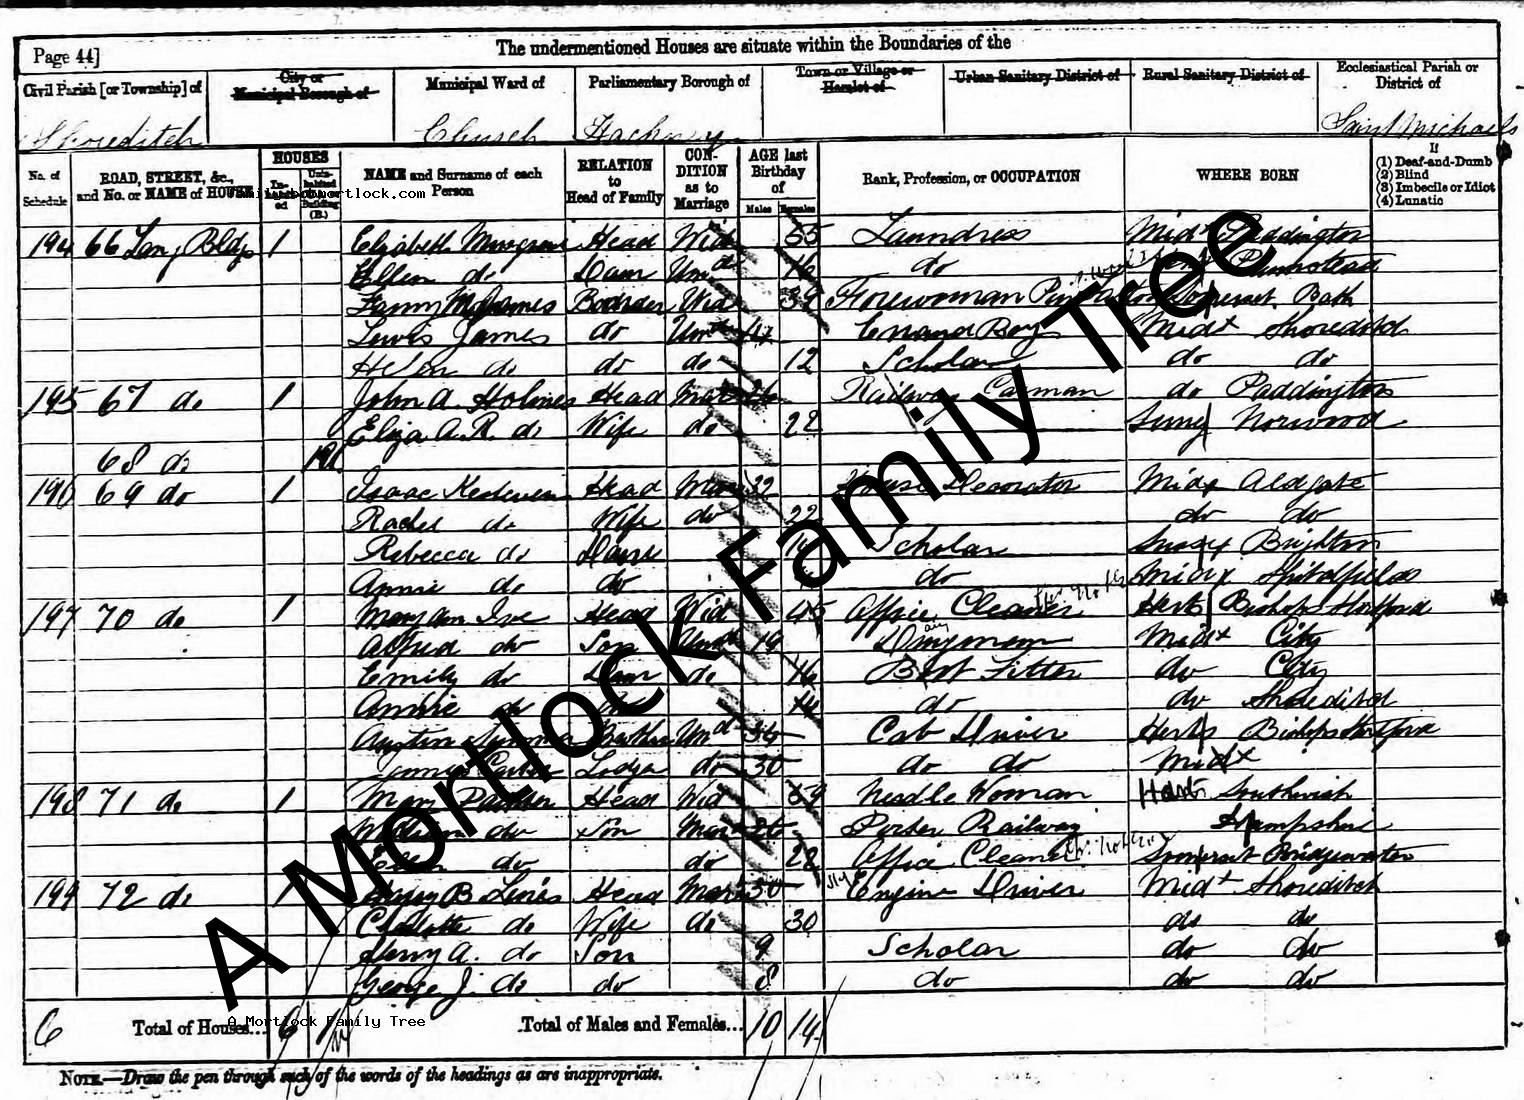 Page 44]
The undermentioned Houses are situate within the Boundaries of the
Civil Parish [or Township] of
City or Municipal Borough of
Municipal Ward of
Parliamentary Borough of
Town or Village or Hamlet of
Urban Sanitary District of
Rural Sanitary District of
Ecclesiastical Parish or District of
Shoreditch Church Hackney Saint Michaels
No. of Schedule
ROAD, STREET, &c., and No. or NAME of HOUSE
HOUSES
Inhabited
Uninhabited Building (B.)
NAME and Surname of each Person
RELATION to Head of Family
CONDITION as to Marriage
AGE last Birthday of
Males Females
Rank, Profession, or OCCUPATION
WHERE BORN
If
(1) Deaf-and-Dumb
(2) Blind
(3) Imbecile or Idiot
(4) Lunatic
mortlock.com
194 66 Bldgs 1 Elizabeth Head Wid 55 Laundress Midx Paddington
Ellen do Daur Unm 16 do Plumstead
Fanny James Boarder Wid 39 Forewoman Somerset Bath
Lewis James do Unm 14 Errand Boy Midx Shoreditch
Helen do do do 12 Scholar do do
195 67 do 1 John A. Holmes Head Mar 26 Railway Carman do Paddington
Eliza A. R. do Wife do 22 Surrey Norwood
68 do
196 69 do 1 Isaac Head Mar 32 House Decorator Midx Aldgate
Rachel do Wife do 22 do do
Rebecca do Daur Scholar Sussex Brighton
Annie do do do Midx Spitalfields
197 70 do 1 Mary Ann Ive Head Wid 45 Office Cleaner Herts Bishops Stortford
Alfred do Son Unm 19 Drayman Midx City
Emily do Daur do 16 Boot Fitter do City
Annie do do 14 do do Shoreditch
Und 36 Cab Driver Herts Bishops Stortford
Lodger do 30 do do Midx
198 71 do 1 Mary Head Wid 59 Needle Woman Hants Southwick
William do Son Mar 26 Porter Railway Hampshire
Ellen do do 28 Office Cleaner Somerset Bridgewater
199 72 do 1 Henry B Head Mar 30 Engine Driver Midx Shoreditch
Charlotte do Wife do 30 do do
Henry A. do Son 9 Scholar do do
George J. do do 8 do do do
6 Total of Houses... 6 Total of Males and Females... 10 14
A Mortlock Family Tree
NOTE.—Draw the pen through such of the words of the headings as are inappropriate.
A Mortlock Family Tree